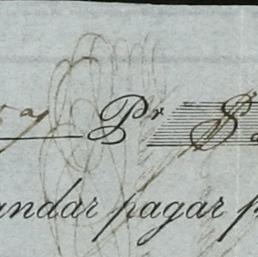 Pr $
andar pagar p